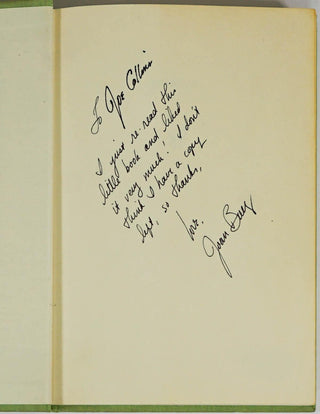 To Joe Collins
I just re-read this
little book and liked
it very much! I don't
think I have a copy
left, so thanks,
love,
Joan Baez